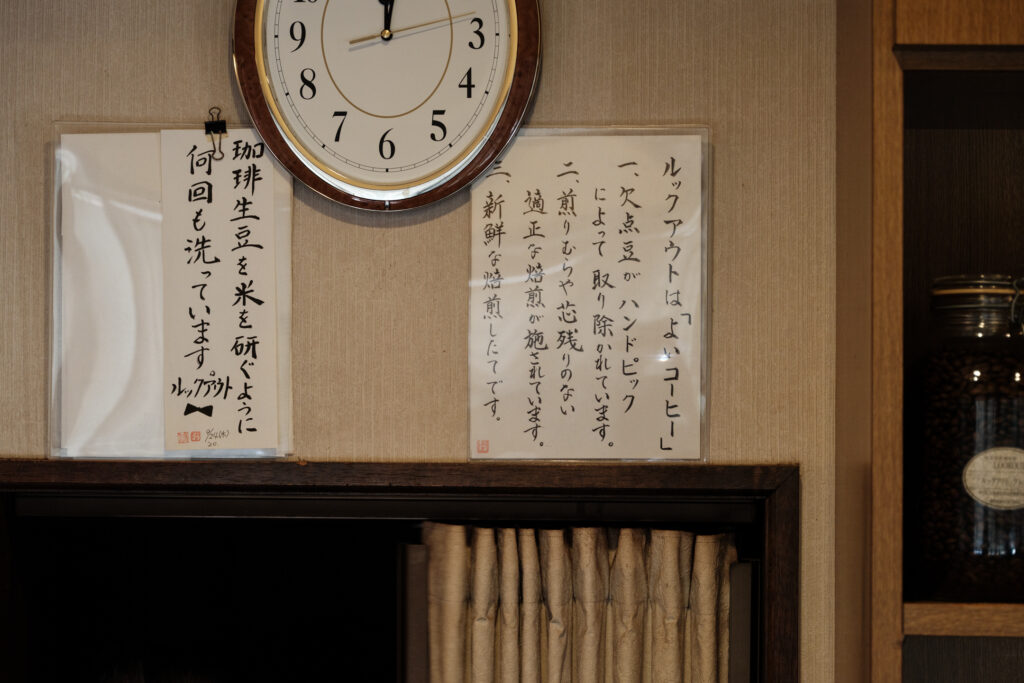 9
8
7
6
5
4
3
ルックアウトは「よいコーヒー」
一、欠点豆が ハンドピック
によって 取り除かれています。
二、煎りむらや芯残りのない
適正な焙煎が施されています。
三、新鮮な焙煎したてです。
珈琲生豆を米を研ぐように
何回も洗っています。
ルックアウト